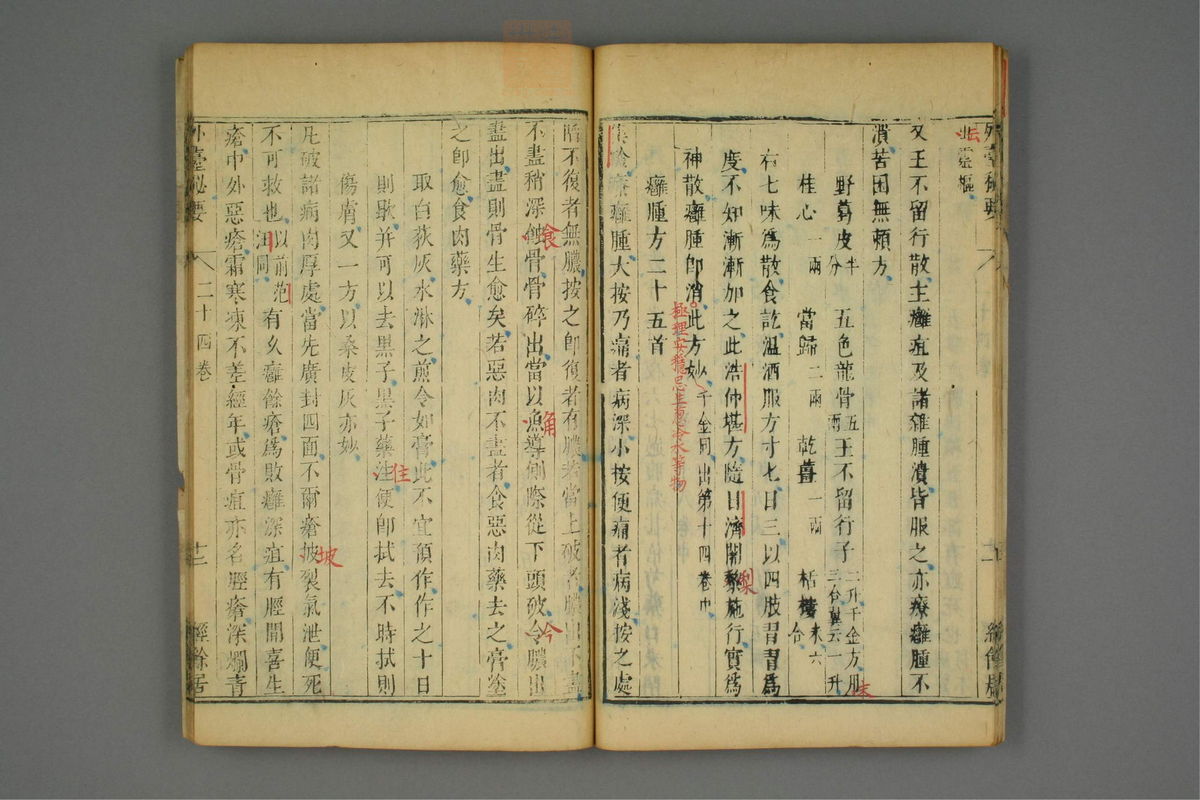 出靈樞
又王不留行散主癰疽及諸雜腫潰皆服之亦療癰腫不
潰苦困無頼方
野葛皮半分 五色龍骨五兩 王不留行子二升千金方用三合翼云一升
桂心一兩 當歸二兩 乾薑一兩 栝樓末六合
右七味爲散食訖溫酒服方寸匕日三以四肢習習爲
度不知漸漸加之此浩仲堪方隨日濟闍黎施行實爲
神散癰腫卽消此方妙千金同出第十四卷中
極理安穩忌生葱冷水等物
癰腫方二十五首
集驗療癰腫大按乃痛者病深小按便痛者病淺按之處
陷不復者無膿按之卽復者有膿者當上破者膿出不盡
不盡稍深蝕骨骨碎出當以漁導側際從下頭破令膿出
盡出盡則骨生愈矣若惡肉不盡者食惡肉藥去之膏塗
之卽愈食肉藥方
取白荻灰水淋之煎令如膏此不宜預作作之十日
則歇并可以去黑子黑子藥注便卽拭去不時拭則
傷膚又一方以桑皮灰亦妙
凡破諸病肉厚處當先廣封四面不爾瘡披裂氣泄便死
不可救也以前范汪同有久癰餘瘡爲敗癰深疽有脛間喜生
瘡中外惡瘡霜寒凍不差經年或骨疽亦名脛瘡深爛青
外臺秘要 二十四卷 十二 經餘居
食
角
今
住
坡
梨
末